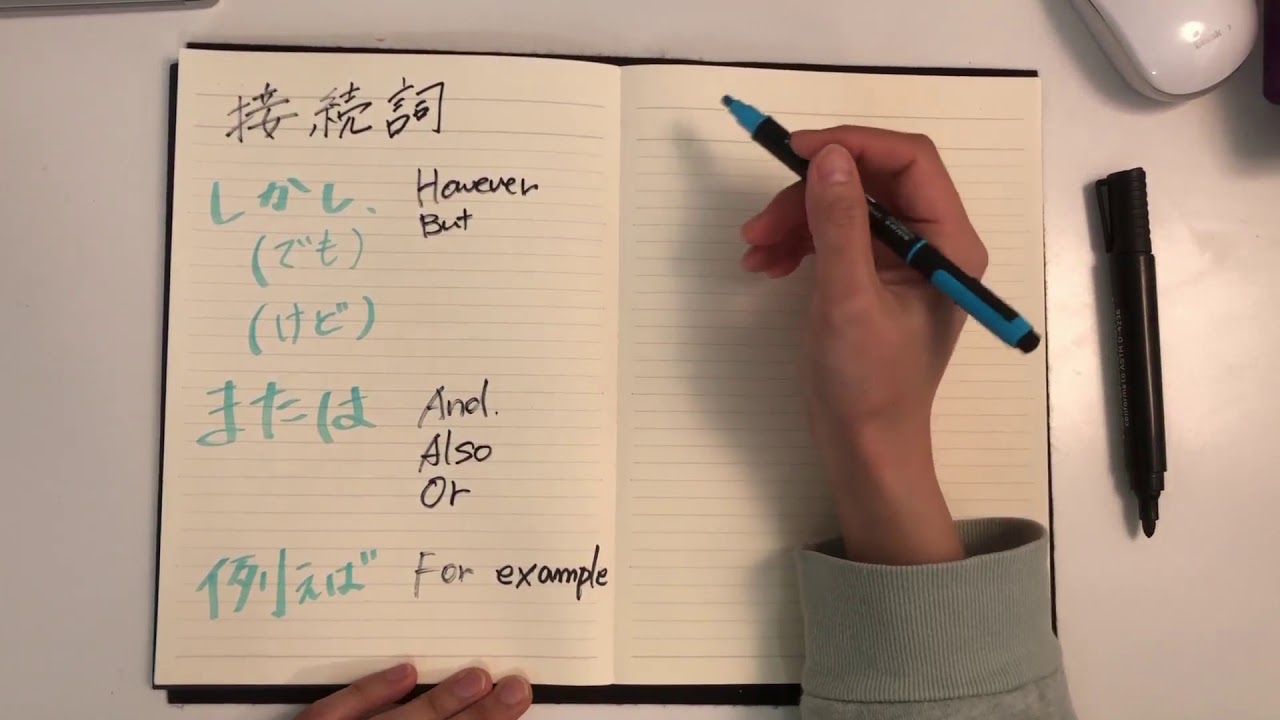 接続詞
しかし、 However
But
(でも)
(けど)
または And.
Also
Or
例えば For example